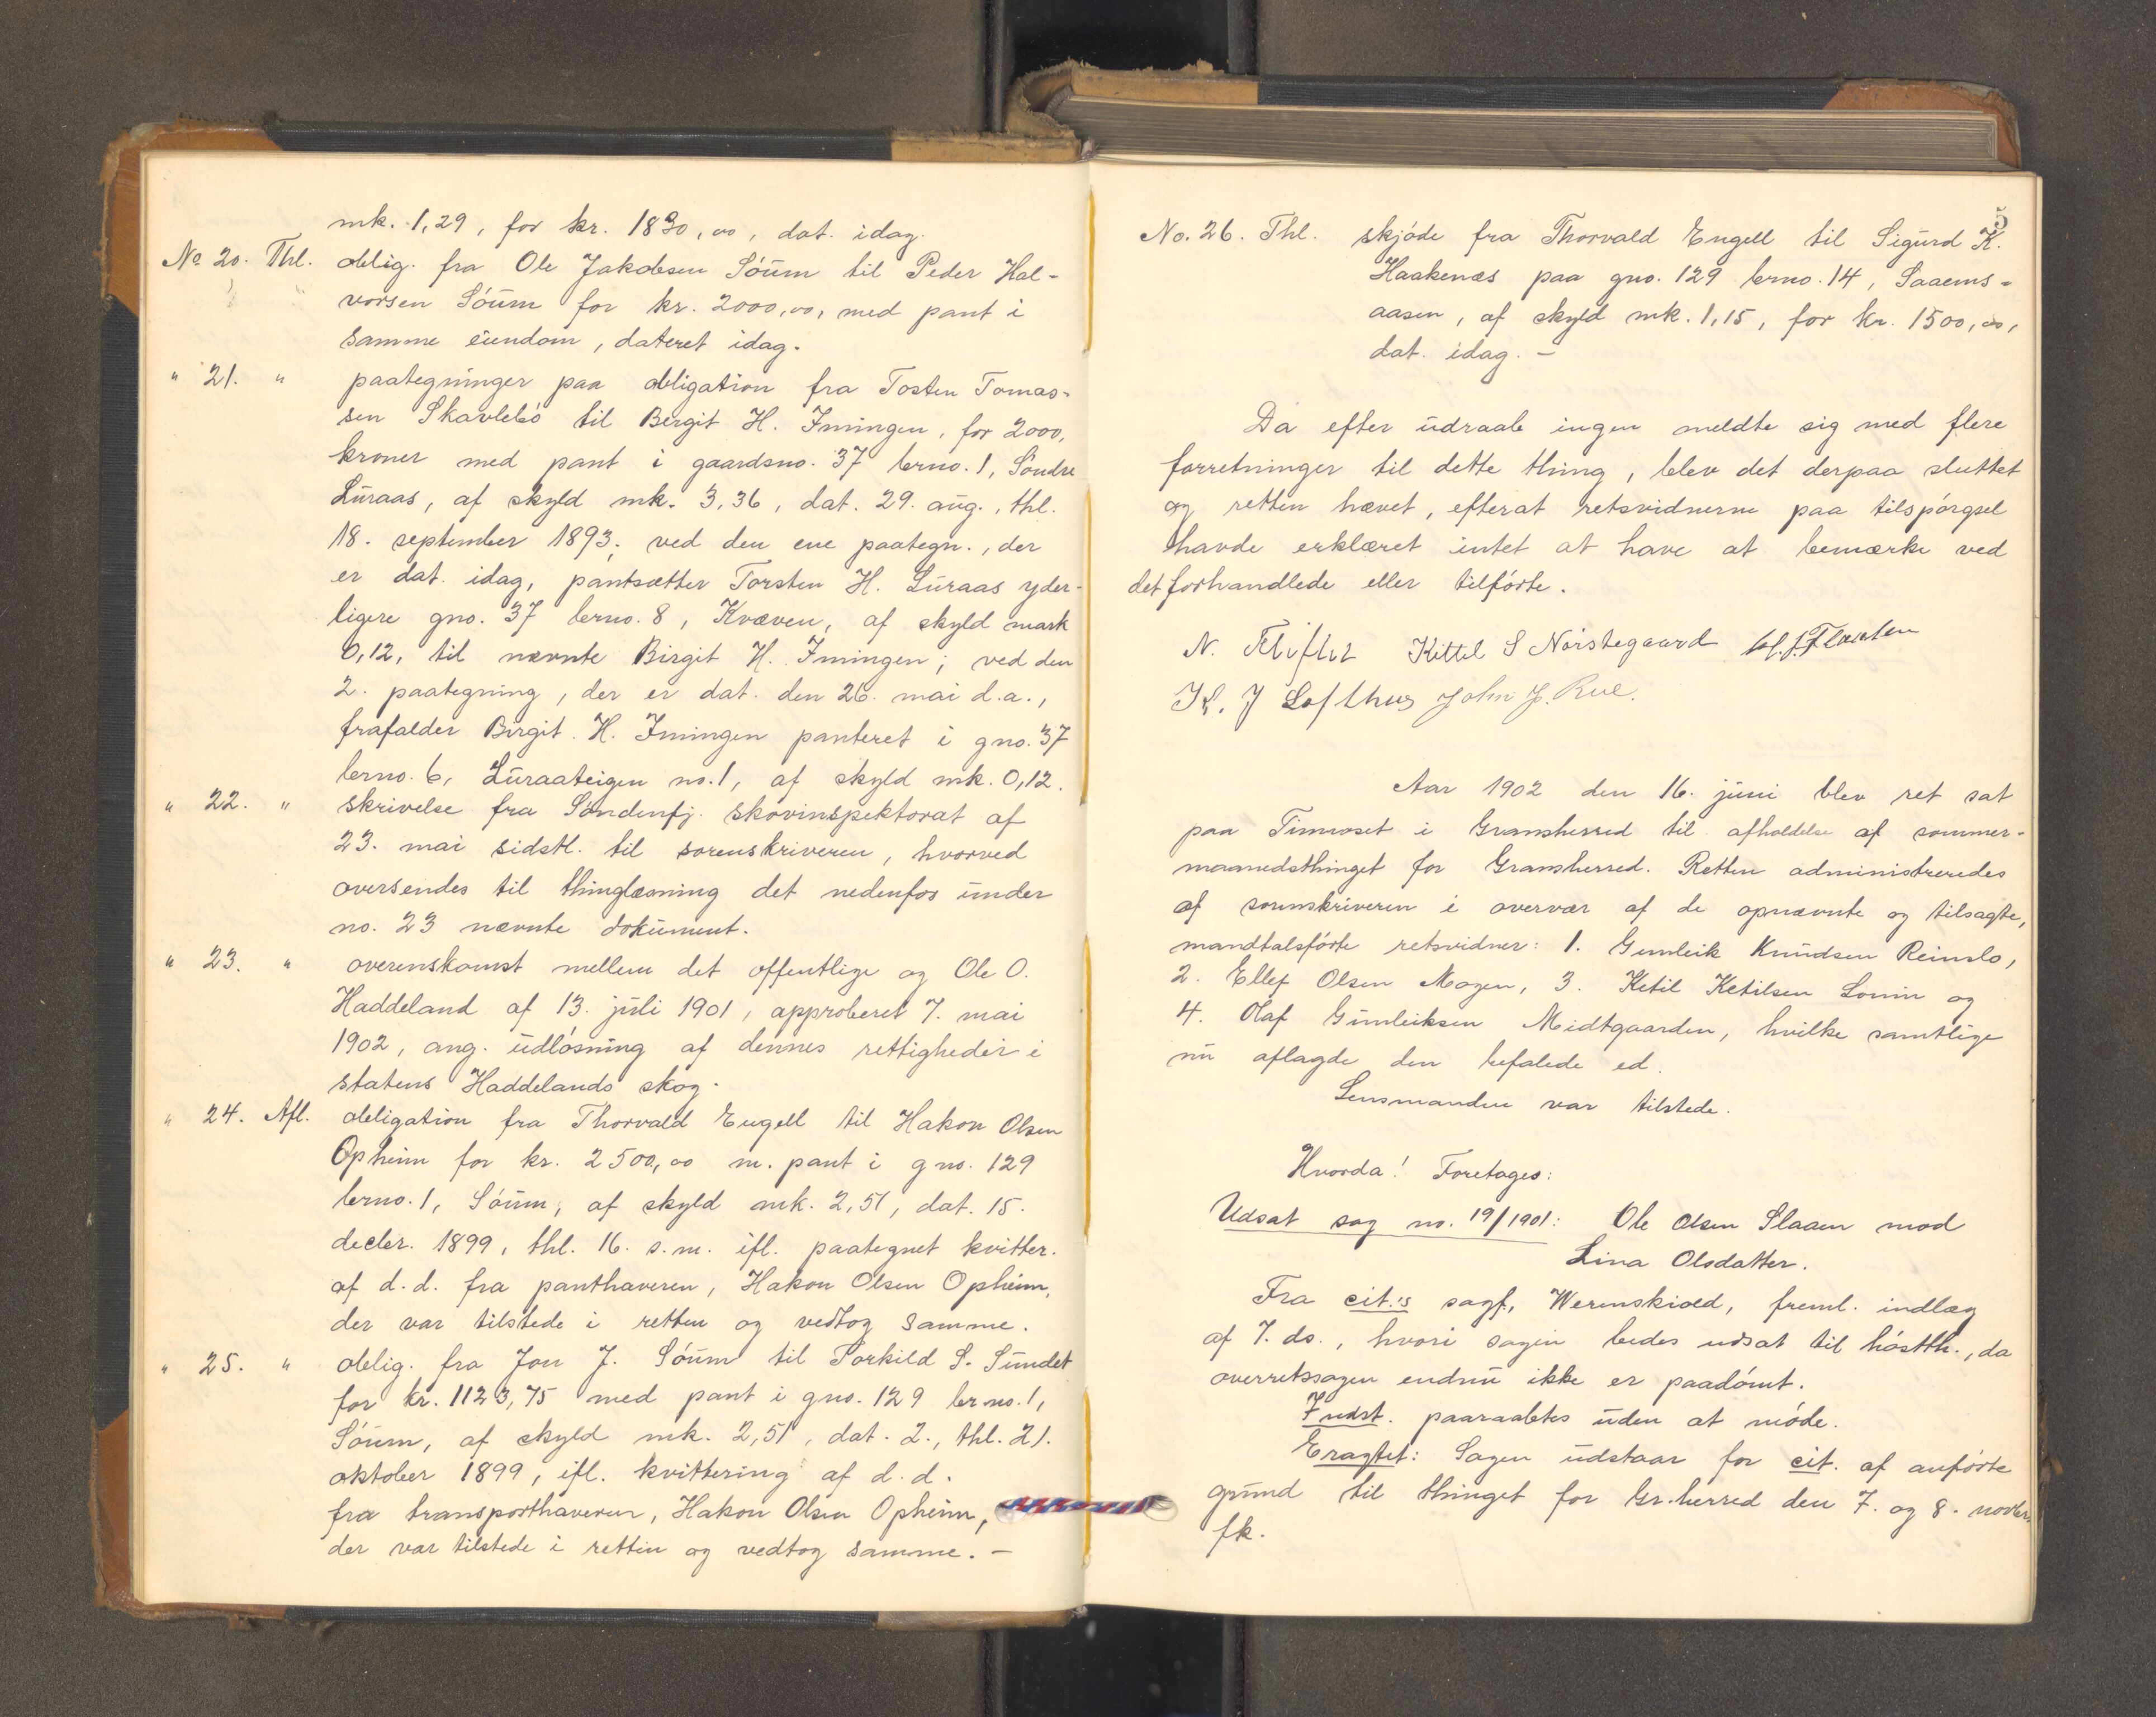 mk. 1,29, for kr. 1830,00, dat. idag.
No 20. Thl. oblig. fra Ole Jakobsen Sóum til Peder Hal-
vorsen Sóum for kr. 2000,00, med pant i
samme eiendom, dateret idag.
" 21. " paategninger paa obligation fra Tosten Tomas-
sen Skavlebó til Birgit H. Imingen, for 2000,
kroner med pant i gaardsno. 37 brno. 1, Søndre
Luraas, af skyld mk. 3,36, dat. 29. aug., thl.
18. september 1893; ved den ene paategn., der
er dat. idag, pantsætter Torsten H. Luraas yder-
ligere gno. 37 brno. 8, Kvæven, af skyld mark
0,12, til nævnte Birgit H. Imingen; ved den
2. paategning, der er dat. den 26. mai d.a.,
frafalder Birgit H. Imingen panteret i gno. 37
brno. 6, Luraateigen no. 1, af skyld mk. 0,12.
" 22. " skrivelse fra Søndenfj. skovinspektorat af
23. mai sidstl. til sorenskriveren, hvorved
oversendes til thinglæsning det nedenfor under
no. 23 nævnte dokument.
" 23. " overenskomst mellem det offentlige og Ole O.
Haddeland af 13. juli 1901, approberet 7. mai
1902, ang. udlósning af dennes rettigheder i
statens Haddelands skog.
" 24. Afl. obligation fra Thorvald Engell til Hakon Olsen
Opheim for kr. 2500,00 m. pant i gno. 129
brno. 1, Sóum, af skyld mk. 2,51, dat. 15.
decbr. 1899, thl. 16. s.m. ifl. paategnet kvitter.
af d.d. fra panthaveren, Hakon Olsen Opheim,
der var tilstede i retten og vedtog samme.
" 25. " oblig. fra Jon J. Sóum til Torkild S. Sundet
for kr. 1123,75 med pant i gno. 129 brno. 1,
Sóum, af skyld mk. 2,51, dat. 2., thl. 21.
oktober 1899, ifl. kvittering af d.d.
fra transporthaveren, Hakon Olsen Opheim,
der var tilstede i retten og vedtog samme. -
5
No. 26. Thl. skjóde fra Thorvald Engell til Sigurd K.
Haakenæs paa gno. 129 brno. 14, Saaems-
aasen, af skyld mk. 1,15, for kr. 1500,00,
dat. idag. -
Da efter udraab ingen meldte sig med flere
forretninger til dette thing, blev det derpaa sluttet
og retten hævet, efterat retsvidnerne paa tilspórgsel
havde erklæret intet at have at bemærke ved
det forhandlede eller tilfórte.
N. Kittel S Nórstegaard
K. J Lofthus John J. Rue.
Aar 1902 den 16. juni blev ret sat
paa Tinnoset i Gransherred til afholdelse af sommer-
maanedsthinget for Gransherred. Retten administreredes
af sorenskriveren i overvær af de opnævnte og tilsagte,
mandtalsfórte retsvidner: 1. Gunleik Knudsen Reinslo,
2. Ellef Olsen Mogen, 3. Ketil Ketilsen Lonin og
4. Olaf Gunleiksen Midtgaarden, hvilke samtlige
nu aflagde den befalede ed.
Lensmanden var tilstede.
Hvorda! Foretages:
Udsat sag no. 19/1901: Ole Olsen Slaaen mod
Lina Olsdatter.
Fra cit.'s sagf., Werenskiold, freml. indlæg
af 7. ds., hvori sagen bedes udsat til hóstth., da
overretssagen endnu ikke er paadómt.
Indst. paaraabtes uden at móde.
Eragtet: Sagen udstaar for cit. af anfórte
grund til thinget for Gr.herred den 7. og 8. novbr.
fk.